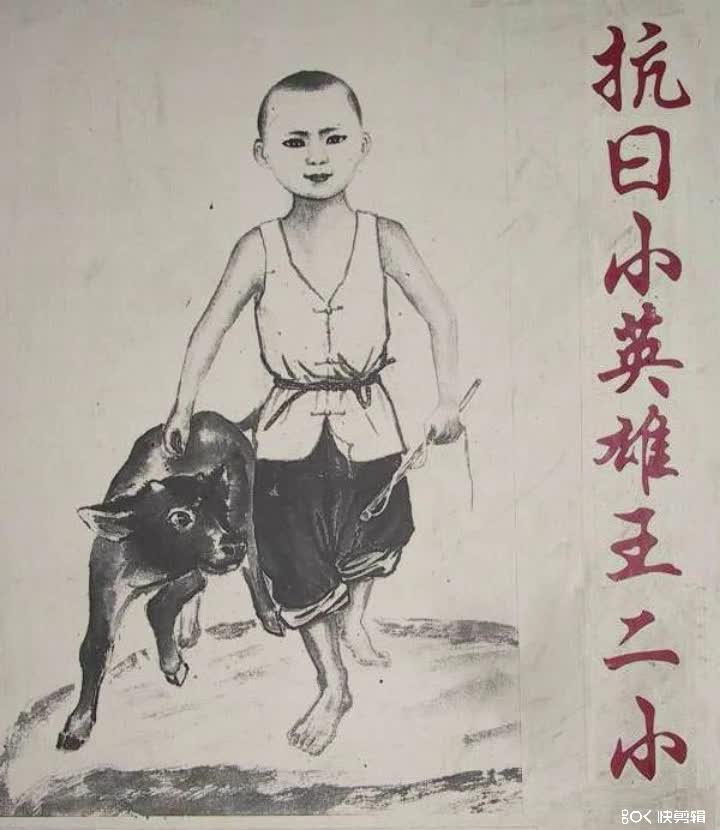 抗日小英雄王二小
快剪辑